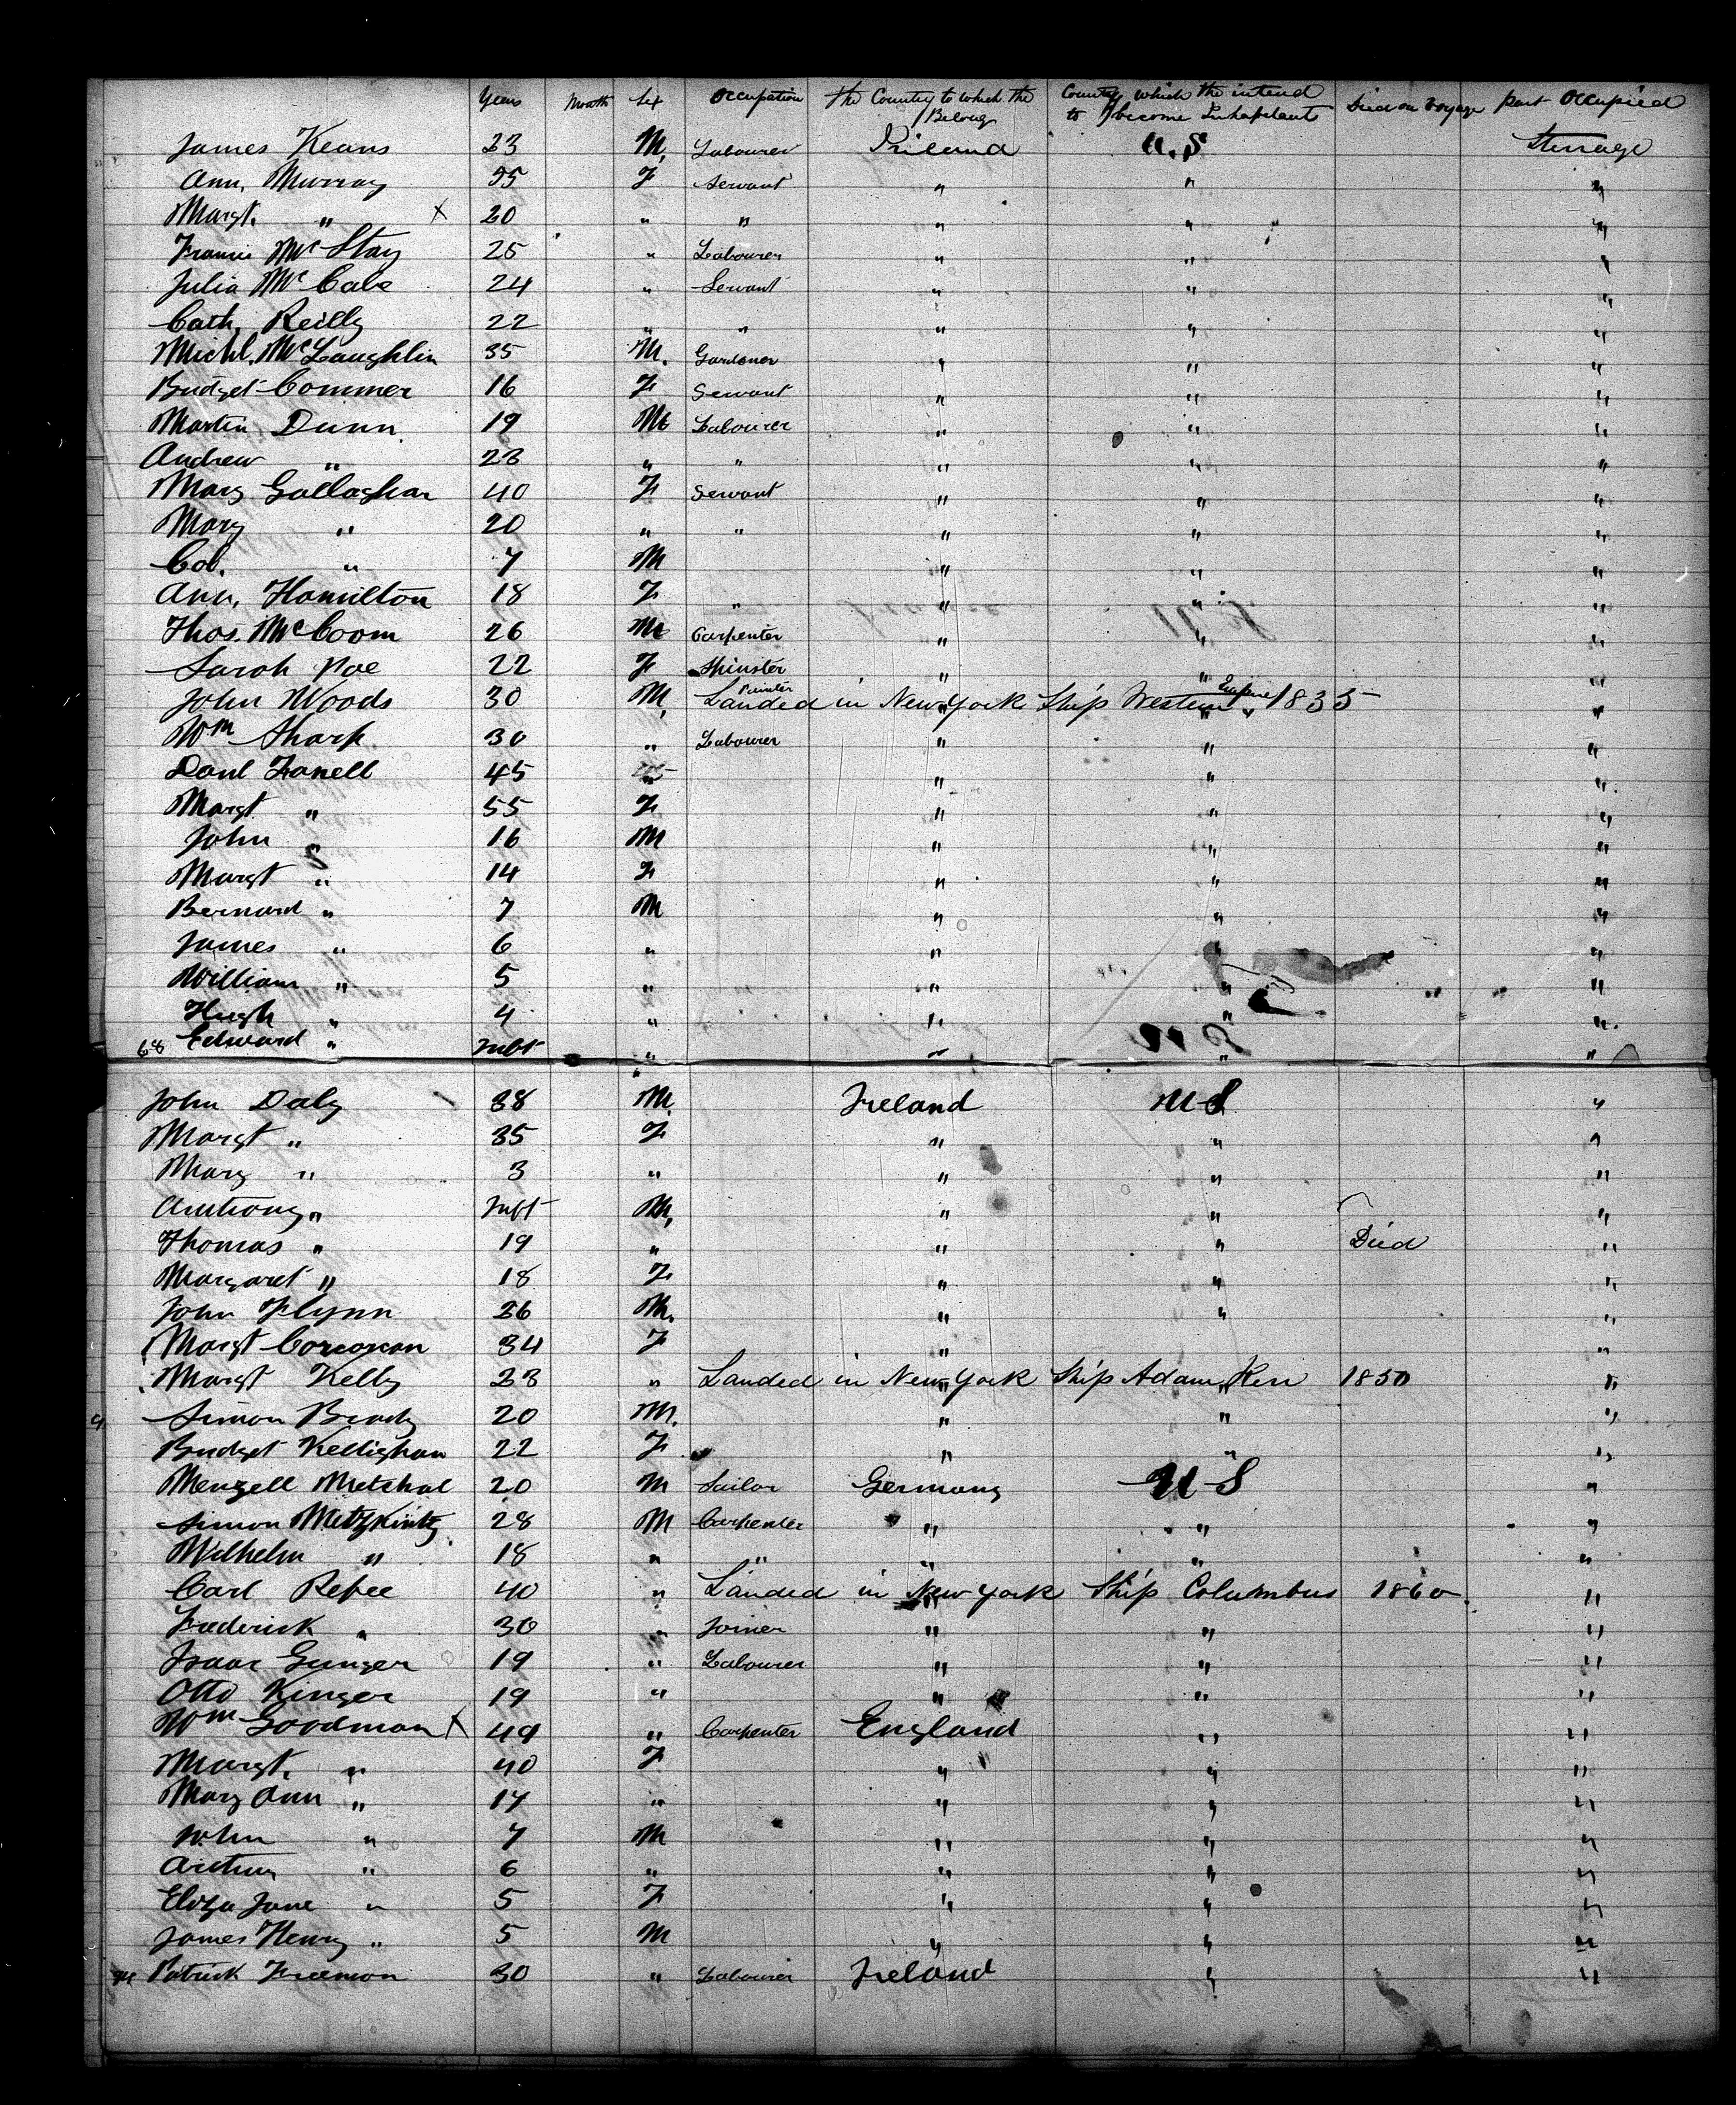 Years Month Sex Occupation the Country to which the Belong Country which the intend to become Inhabitants Died on Voyage part Occupied
James Keans 23 M. Labourer Ireland U.S Steerage
Ann, Murray 55 F Servant " " "
Margt. " X 20 " " " " "
Francis McStay 25 " Labourer " " "
Julia McCabe 24 " Servant " " "
Cath, Reilly 22 " " " " "
Michl. McLaughlin 35 M. Gardener " " "
Bridget Commer 16 F Servant " " "
Martin Dunn 19 M Labourer " " "
Andrew " 23 " " " " "
Mary Gallaghar 40 F Servant " " "
Mary " 20 " " " " "
" 7 M " " "
Ann, Hamilton 18 F " " " "
Thos. McCoom 26 M Carpenter " " "
Sarah Poe 22 F Spinster " " "
John Woods 30 M, Painter Landed in New York Ship Western Empire 1855 "
Wm Sharp 30 " Labourer " " "
Danl Farrell 45 " " " "
Margt " 55 F " " "
John " 16 M " " "
Margt " 14 F " " "
Bernard " 7 M " " "
James " 6 " " " "
William " 5 " " " "
Hugh " 4 " " " "
68 Edward " Inft " " " "
John Daly 38 M. Ireland U S "
Margt " 35 F " " "
Mary " 3 " " " "
Anthony " Inft M, " " "
Thomas " 19 " " " Died "
Margaret " 18 F " " "
John Flynn 26 M. " " "
Margt Corcoran 34 F " "
Margt Kelly 23 " Landed in New York Ship Adam 1850 "
Simon Brady 20 M. " " "
Bridget Kellighan 22 F " " "
Menzell Metshal 20 M Sailor Germany U S "
Simon Mitzkintz 28 M Carpenter " " "
Wilhelm " 18 " " " " "
Carl Refee 40 " Landed in New York Ship Columbus 1860. "
Frederick " 30 " Joiner " " "
Isaac Gunger 19 " Labourer " " "
Otto Kinger 19 " " " "
Wm Goodman X 49 " Carpenter England " "
Margt. " 40 F " " "
Mary Ann " 17 " " " "
John " 7 M " " "
Arthur " 6 " " " "
Eliza Jane " 5 F " " "
James Henry " 5 M " " "
Patrick Freeman 30 " Labourer Ireland " "